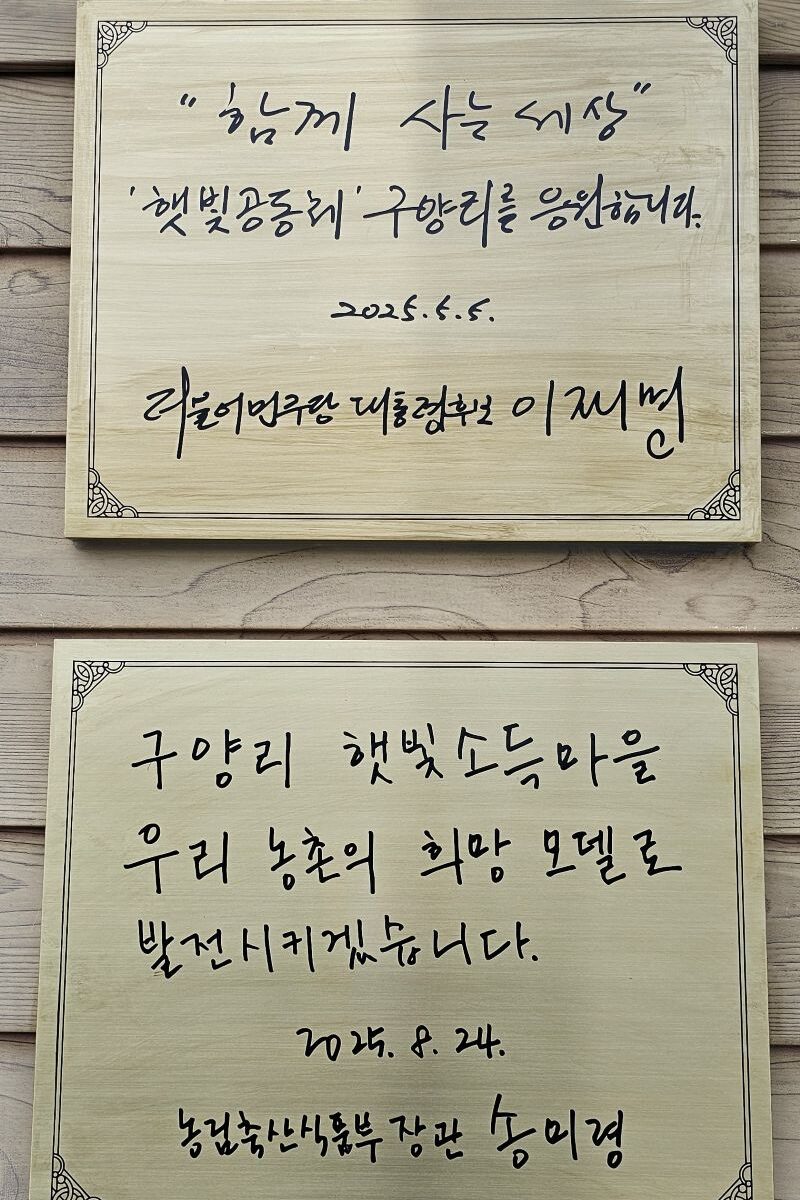 "함께 사는 세상"
'햇빛공동체' 구양리를 응원합니다.
2025.5.5.
더불어민주당 대통령후보 이재명
구양리 햇빛소득마을
우리 농촌의 희망 모델로
발전시키겠습니다.
2025. 8. 24.
농림축산식품부 장관 송미령